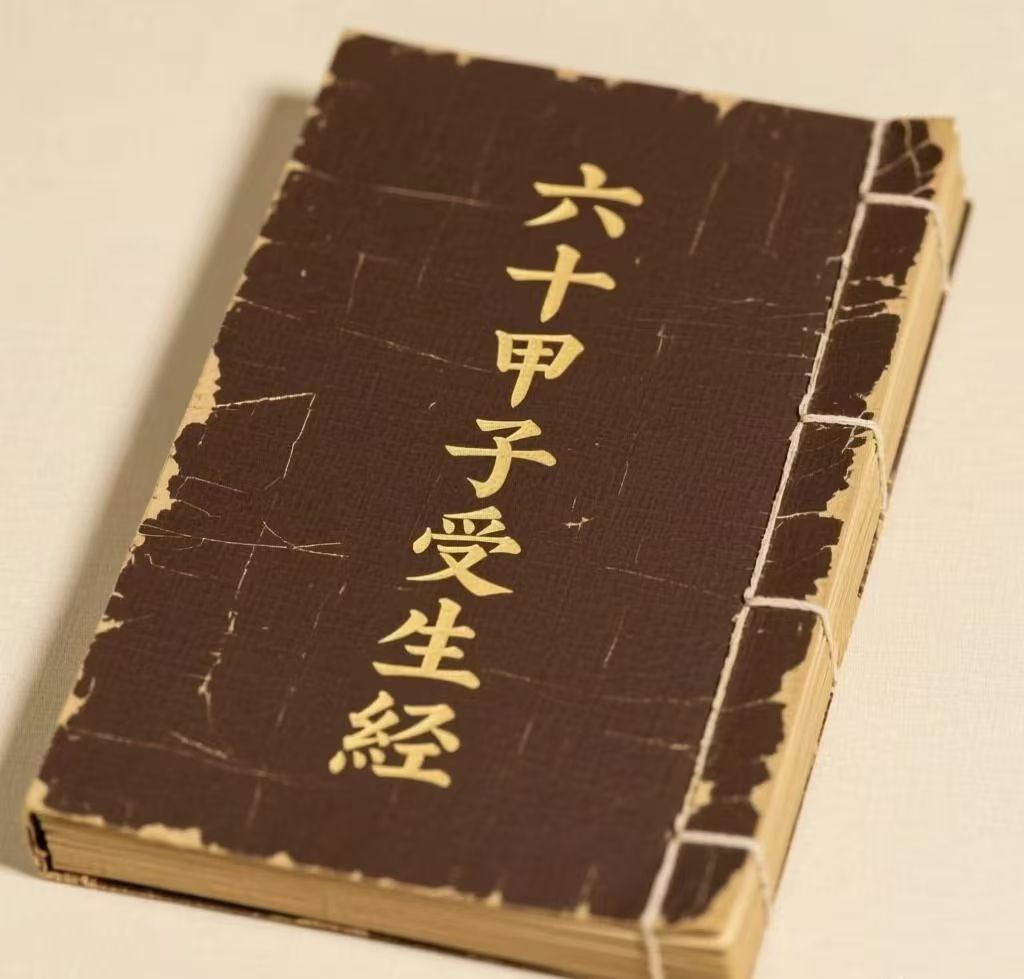 六十甲子受生経